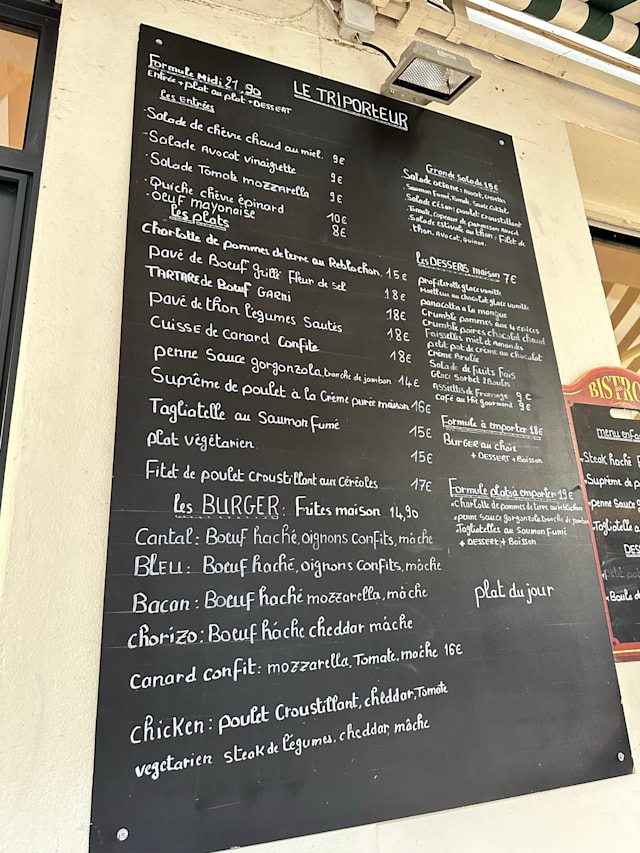 LE TRIPORTEUR
Formule Midi 21,90
Entrée + plat ou plat + DESSERT
les Entrées
Salade de chèvre chaud au miel. 9€
Salade Avocat vinaigrette 9€
Salade Tomate mozzarella 9€
Quiche chèvre épinard 10€
Oeuf mayonaise 8€
les plats
Charlotte de pommes de terre au Reblochon. 15€
pavé de Boeuf grillé Fleur de sel 18€
TARTARE de Boeuf GARNI 18€
pavé de thon légumes Sautés 18€
Cuisse de canard Confite 18€
penne Sauce gorgonzola, tranche de jambon 14€
Suprême de poulet à la Crème purée maison 16€
Tagliatelle au Saumon Fumé 15€
plat végétarien 15€
Filet de poulet croustillant aux Céréales 17€
les BURGER: Frites maison 14,90
Cantal: Boeuf haché, oignons Confits, mâche
BLEU: Boeuf haché, oignons Confits, mâche
Bacan: Boeuf haché mozzarella, mâche
chorizo: Boeuf háche cheddar mâche
Canard confit: mozzarella, Tomate, mache 16€
chicken: poulet Croustillant, cheddar, Tomate
vegetarien steak de légumes, cheddar, mâche
Grande Salade 15€
Salade océane: Avocat, Crevettes
Saumon Fumé, Tomate, Sauce Cocktail
Salade César: poulet Croustillant
Tomate, Copeaux de parmesan Avocat
Salade estivale au thon: Filet de
thon, Avocat, quinoa.
les DESSERTS maison 7€
profiterolle glace vanille
Moelleux au chocolat glace vanille
panacotta a la mangue
Crumble pommes aux 4 épices
Crumble poires chocolat chaud
Faisselles miel et Amandes
petit pot de crème au chocolat
Crème Brulée
Salade de fruits Fais
Glace Sorbet 2 Boules
Assiettes de Fromage 9€
café ou thé gourmand 9€
Formule à emporter 18€
BURGER au choix
+ DESSERT + Boisson
Formule plats a emporter 19€
Charlotte de pommes de terre au reblochon
penne sauce gorgonzola tranche de jambon
Tagliatelles au Saumon Fumé
+ DESSERT + Boisson
plat du jour
BISTRO
menu enfa
Steak haché F
Suprême de p
penne Sauce
Tagliatelle a
DES
Boule d